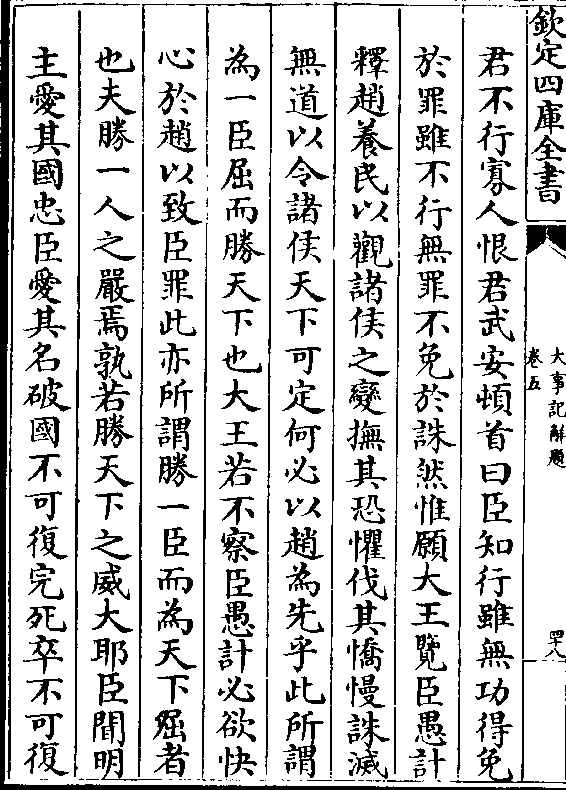 欽定四庫全書
大事記解題
卷五
四八
君不行寡人恨君武安頓首曰臣知行雖無功得免
於罪雖不行無罪不免於誅然惟願大王覽臣愚計
釋趙養民以觀諸侯之變撫其恐懼伐其憍慢誅滅
無道以令諸侯天下可定何必以趙為先乎此所謂
為一臣屈而勝天下也大王若不察臣愚計必欲快
心於趙以致臣罪此亦所謂勝一臣而為天下屈者
也夫勝一人之嚴焉孰若勝天下之威大耶臣聞明
主愛其國忠臣愛其名破國不可復完死卒不可復